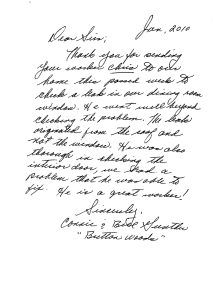 Jan, 2010
Dear Sir,
Thank you for sending
your worker Chris to our
home this passed week to
check a leak in our dining room
window. He went well beyond
checking the problem. The leak
originated from the roof and
not the window. He was also
thorough in checking the
interior door, we had a
problem that he was able to
fix. He is a great worker!
Sincerely,
Connie & Bill
"Britton Woods"